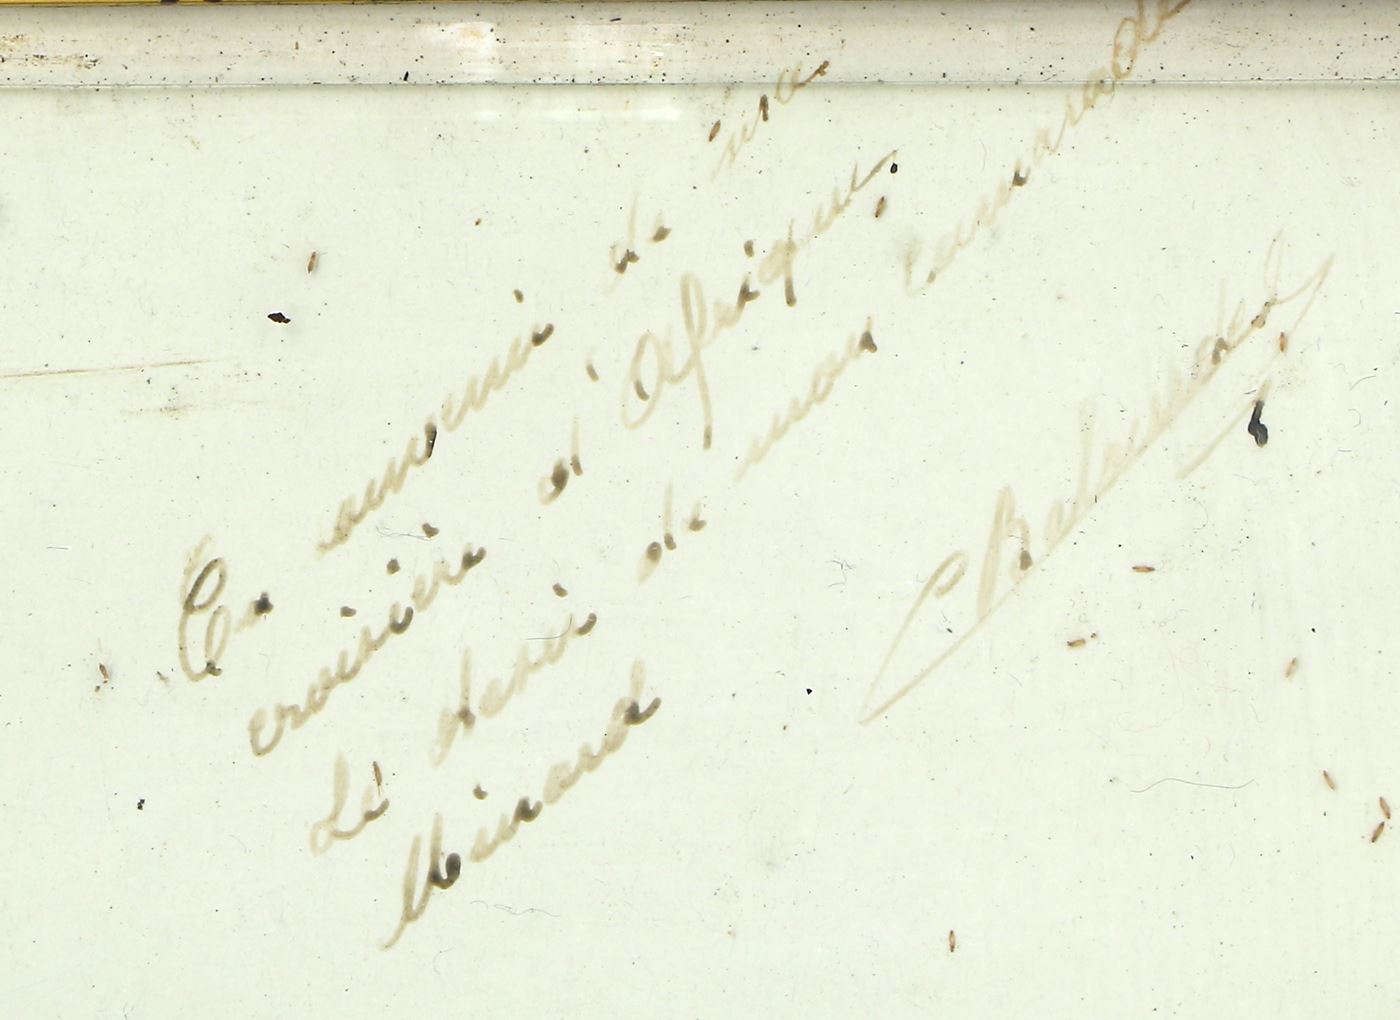 En souvenir de ma
croisière d'Afrique
Le désir de mon Camarade
Minard